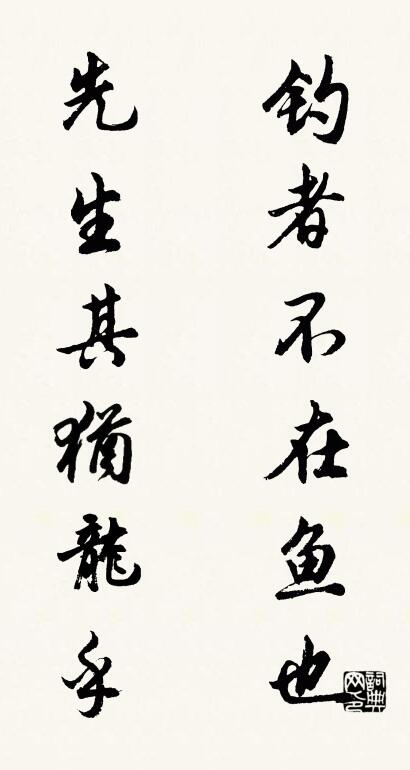 钓者不在鱼也
先生其犹龍乎
詞典网